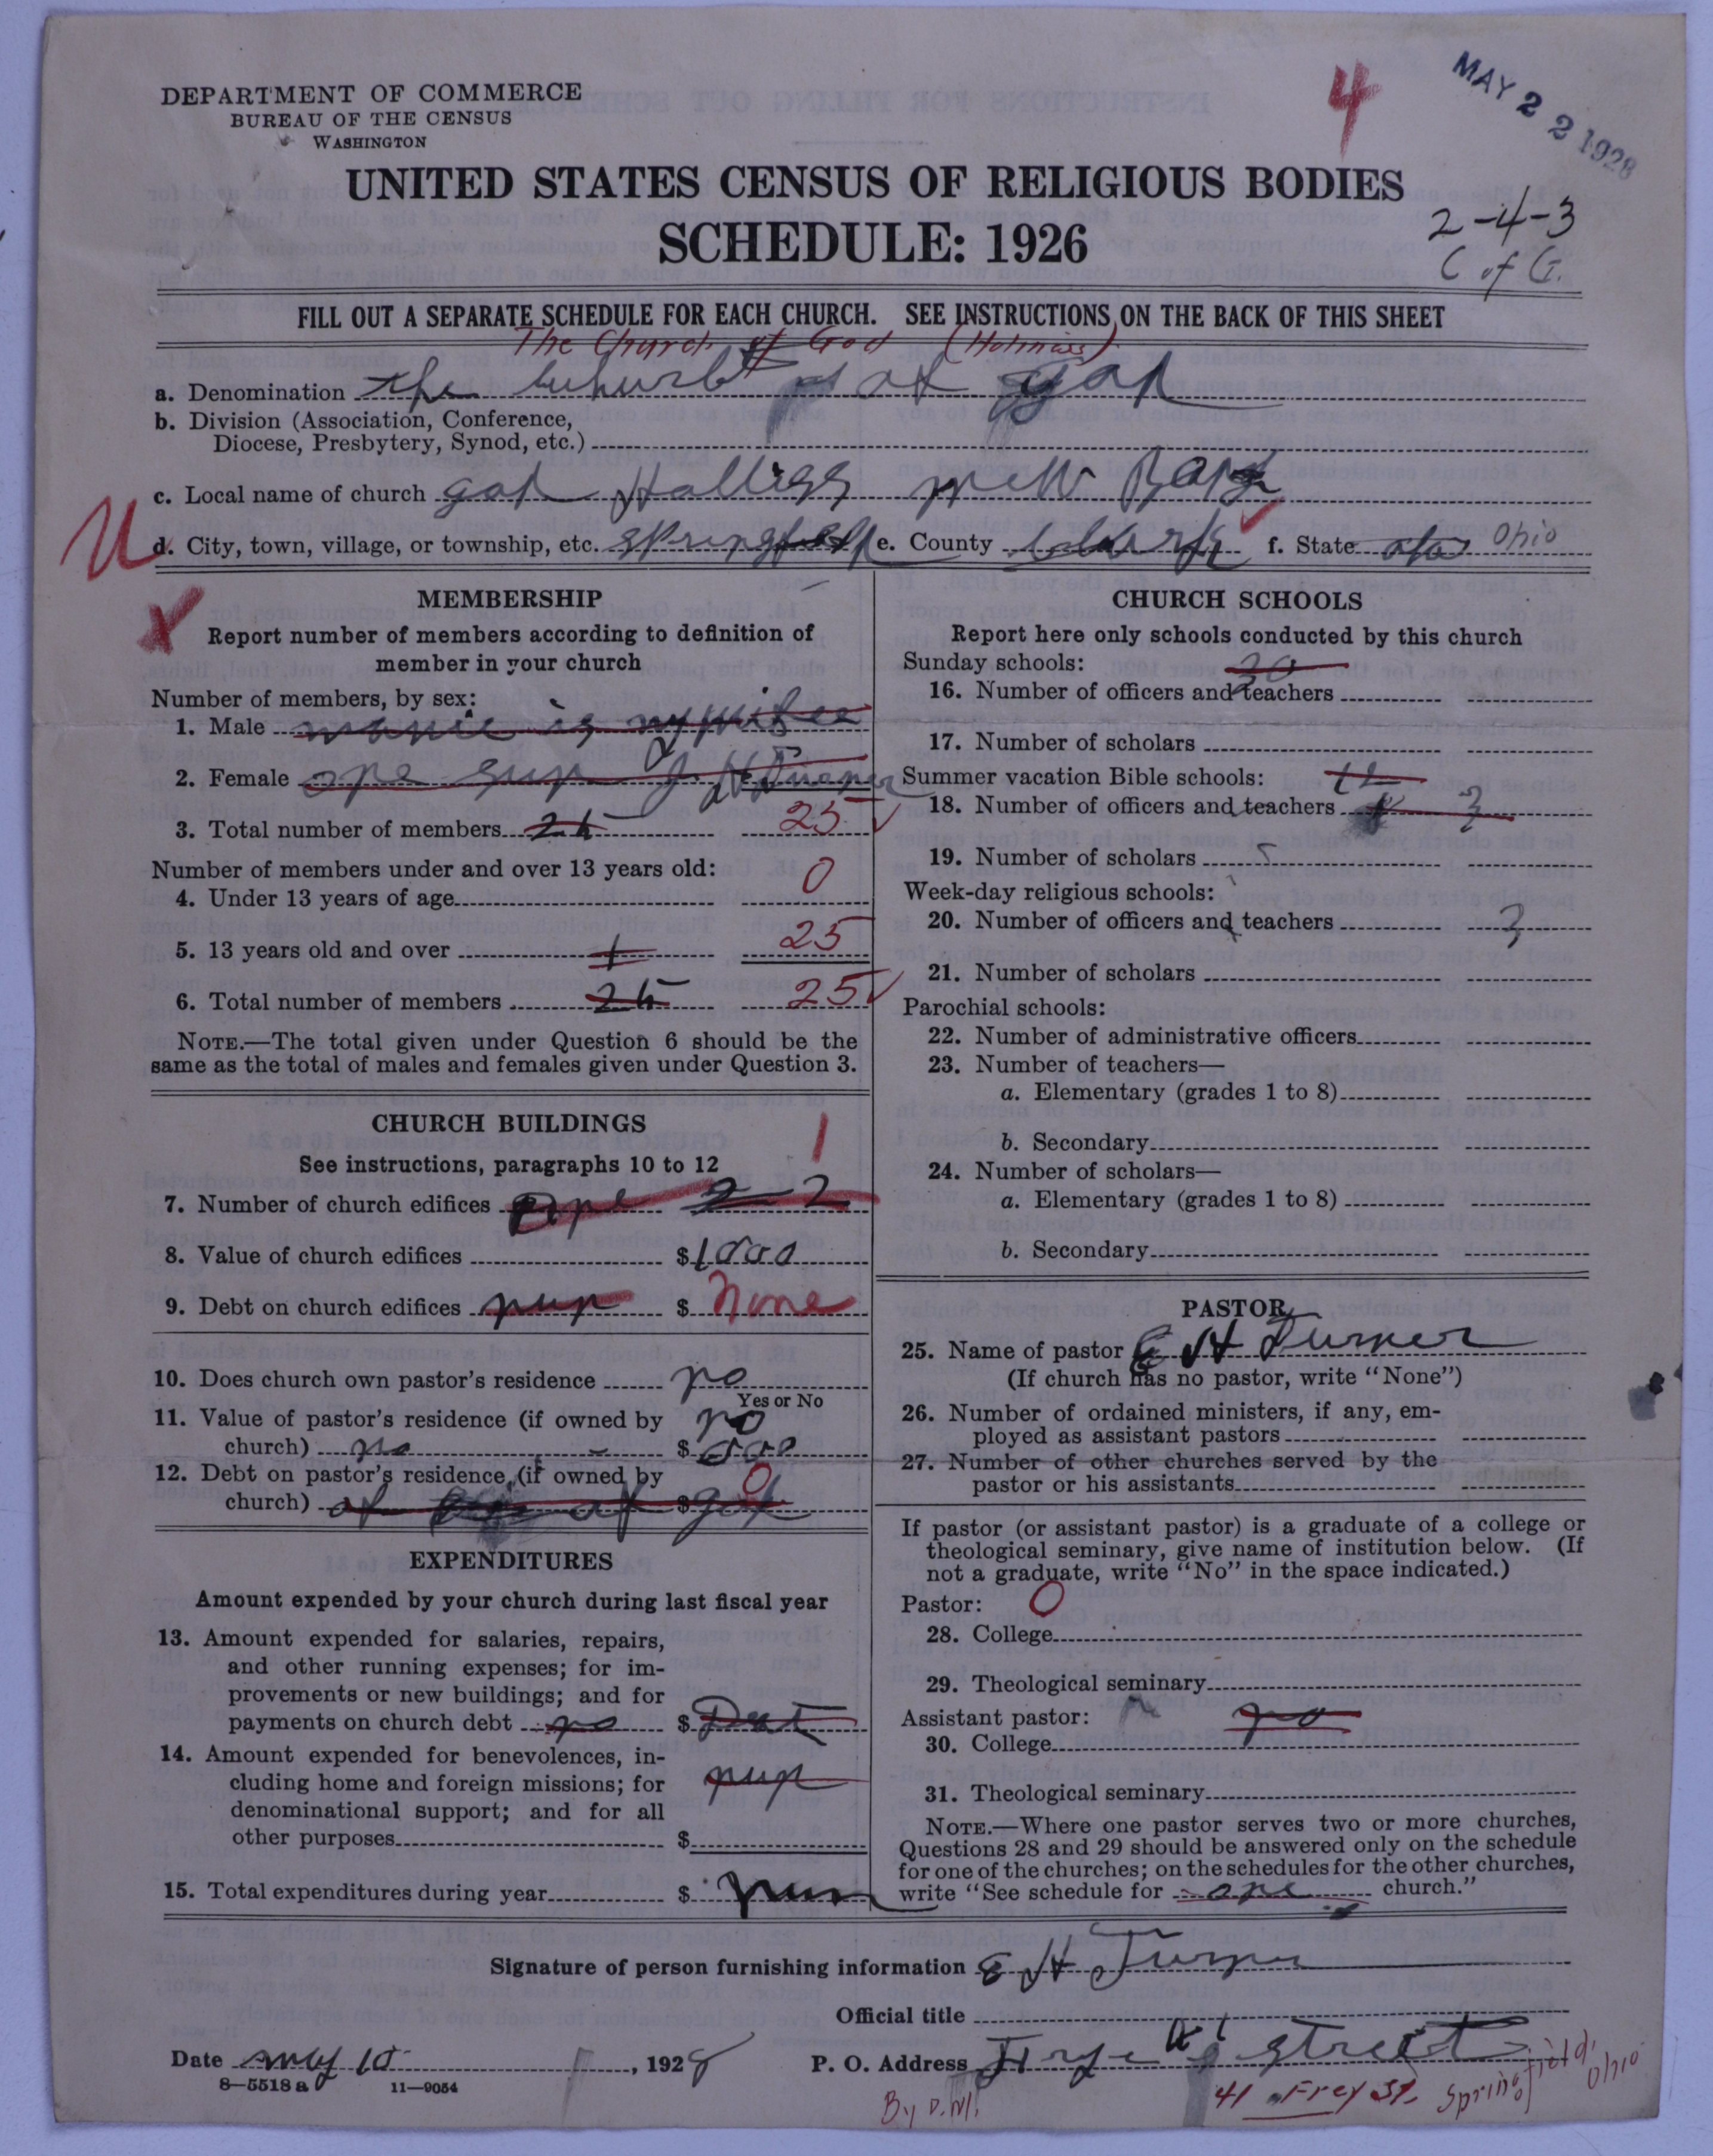 DEPARTMENT OF COMMERCE
BUREAU OF THE CENSUS
WASHINGTON
4
MAY 22 1928
UNITED STATES CENSUS OF RELIGIOUS BODIES
SCHEDULE: 1926
2-4-3
C of G.
FILL OUT A SEPARATE SCHEDULE FOR EACH CHURCH. SEE INSTRUCTIONS ON THE BACK OF THIS SHEET
The Church of God (Holiness)
a. Denomination the of god
b. Division (Association, Conference,
Diocese, Presbytery, Synod, etc.)
c. Local name of church god
U
d. City, town, village, or township, etc. springfield e. County Clark f. State Ohio
X
MEMBERSHIP
Report number of members according to definition of
member in your church
Number of members, by sex:
1. Male
2. Female H Turner
3. Total number of members 25 25
Number of members under and over 13 years old:
4. Under 13 years of age 0
5. 13 years old and over 25
6. Total number of members 25 25
NOTE.—The total given under Question 6 should be the
same as the total of males and females given under Question 3.
CHURCH BUILDINGS
See instructions, paragraphs 10 to 12
1
7. Number of church edifices 2 2
8. Value of church edifices $1000
9. Debt on church edifices $ None
10. Does church own pastor's residence no
Yes or No
11. Value of pastor's residence (if owned by no
church) no $ 000
12. Debt on pastor's residence (if owned by 0
church) $ god
EXPENDITURES
Amount expended by your church during last fiscal year
13. Amount expended for salaries, repairs,
and other running expenses; for im-
provements or new buildings; and for
payments on church debt no $
14. Amount expended for benevolences, in-
cluding home and foreign missions; for
denominational support; and for all
other purposes $
15. Total expenditures during year $
CHURCH SCHOOLS
Report here only schools conducted by this church
Sunday schools: 30
16. Number of officers and teachers
17. Number of scholars
Summer vacation Bible schools:
18. Number of officers and teachers 3
19. Number of scholars
Week-day religious schools:
20. Number of officers and teachers 3
21. Number of scholars
Parochial schools:
22. Number of administrative officers
23. Number of teachers—
a. Elementary (grades 1 to 8)
b. Secondary
24. Number of scholars—
a. Elementary (grades 1 to 8)
b. Secondary
PASTOR
25. Name of pastor E H Turner
(If church has no pastor, write "None")
26. Number of ordained ministers, if any, em-
ployed as assistant pastors
27. Number of other churches served by the
pastor or his assistants
If pastor (or assistant pastor) is a graduate of a college or
theological seminary, give name of institution below. (If
not a graduate, write "No" in the space indicated.)
Pastor: 0
28. College
29. Theological seminary
Assistant pastor: no
30. College
31. Theological seminary
NOTE.—Where one pastor serves two or more churches,
Questions 28 and 29 should be answered only on the schedule
for one of the churches; on the schedules for the other churches,
write "See schedule for one church."
Signature of person furnishing information E H Turner
Official title
Date may 10, 1928 P. O. Address street
8—5518 a 11—9054
By D.M. 41 Frey St. Springfield, Ohio